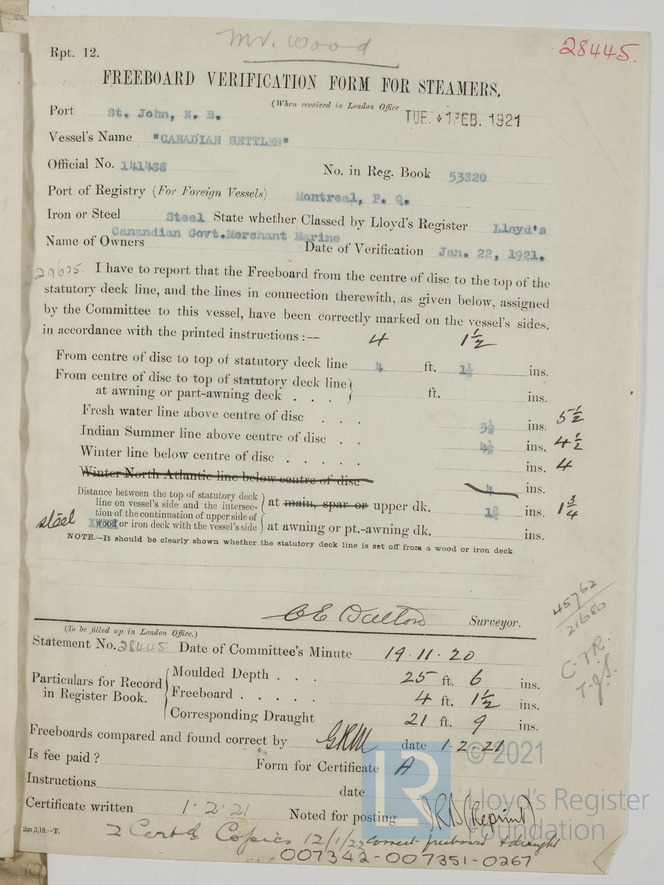 Mr. Wood
28445.
Rpt. 12.
FREEBOARD VERIFICATION FORM FOR STEAMERS.
(When received in London Office
TUE. 1 FEB. 1921
Port St. John, N. B.
Vessel's Name "CANADIAN SETTLER"
Official No. 141488 No. in Reg. Book 53820
Port of Registry (For Foreign Vessels) Montreal, P. Q.
Iron or Steel Steel State whether Classed by Lloyd's Register Lloyd's
Canandian Govt.Merchant Marine
Name of Owners Date of Verification Jan. 22, 1921.
29625. I have to report that the Freeboard from the centre of disc to the top of the
statutory deck line, and the lines in connection therewith, as given below, assigned
by the Committee to this vessel, have been correctly marked on the vessel's sides,
in accordance with the printed instructions :— 4 1½
From centre of disc to top of statutory deck line 4 ft. 1½ ins.
From centre of disc to top of statutory deck line
at awning or part-awning deck . . . ft. ins.
Fresh water line above centre of disc . . . 5½ ins. 5½
Indian Summer line above centre of disc . . 4½ ins. 4½
Winter line below centre of disc . . . . . ins. 4
Winter North Atlantic line below centre of disc 4 ins.
Distance between the top of statutory deck
line on vessel's side and the intersec-
tion of the continuation of upper side of
steel wood or iron deck with the vessel's side
at main, spar or upper dk. 1¾ ins. 1¾
at awning or pt.-awning dk. ins.
NOTE.—It should be clearly shown whether the statutory deck line is set off from a wood or iron deck
45762
21680
C E Dalton Surveyor.
(To be filled up in London Office.)
Statement No. 28445 Date of Committee's Minute 19.11.20
C.J.R.
T.J.S.
Particulars for Record
in Register Book.
Moulded Depth . . . 25 ft. 6 ins.
Freeboard . . . . . 4 ft. 1½ ins.
Corresponding Draught 21 ft. 9 ins.
Freeboards compared and found correct by GRM date 1.2.21
Is fee paid ? Form for Certificate A
Instructions date
Certificate written 1.2.21 Noted for posting JRD (Reprint)
2m,3,18.—T.
2 Cert & Copies 12/1/22 correct freeboard & draught
007342-007351-0267
© 2021
LR
Lloyd's Register
Foundation